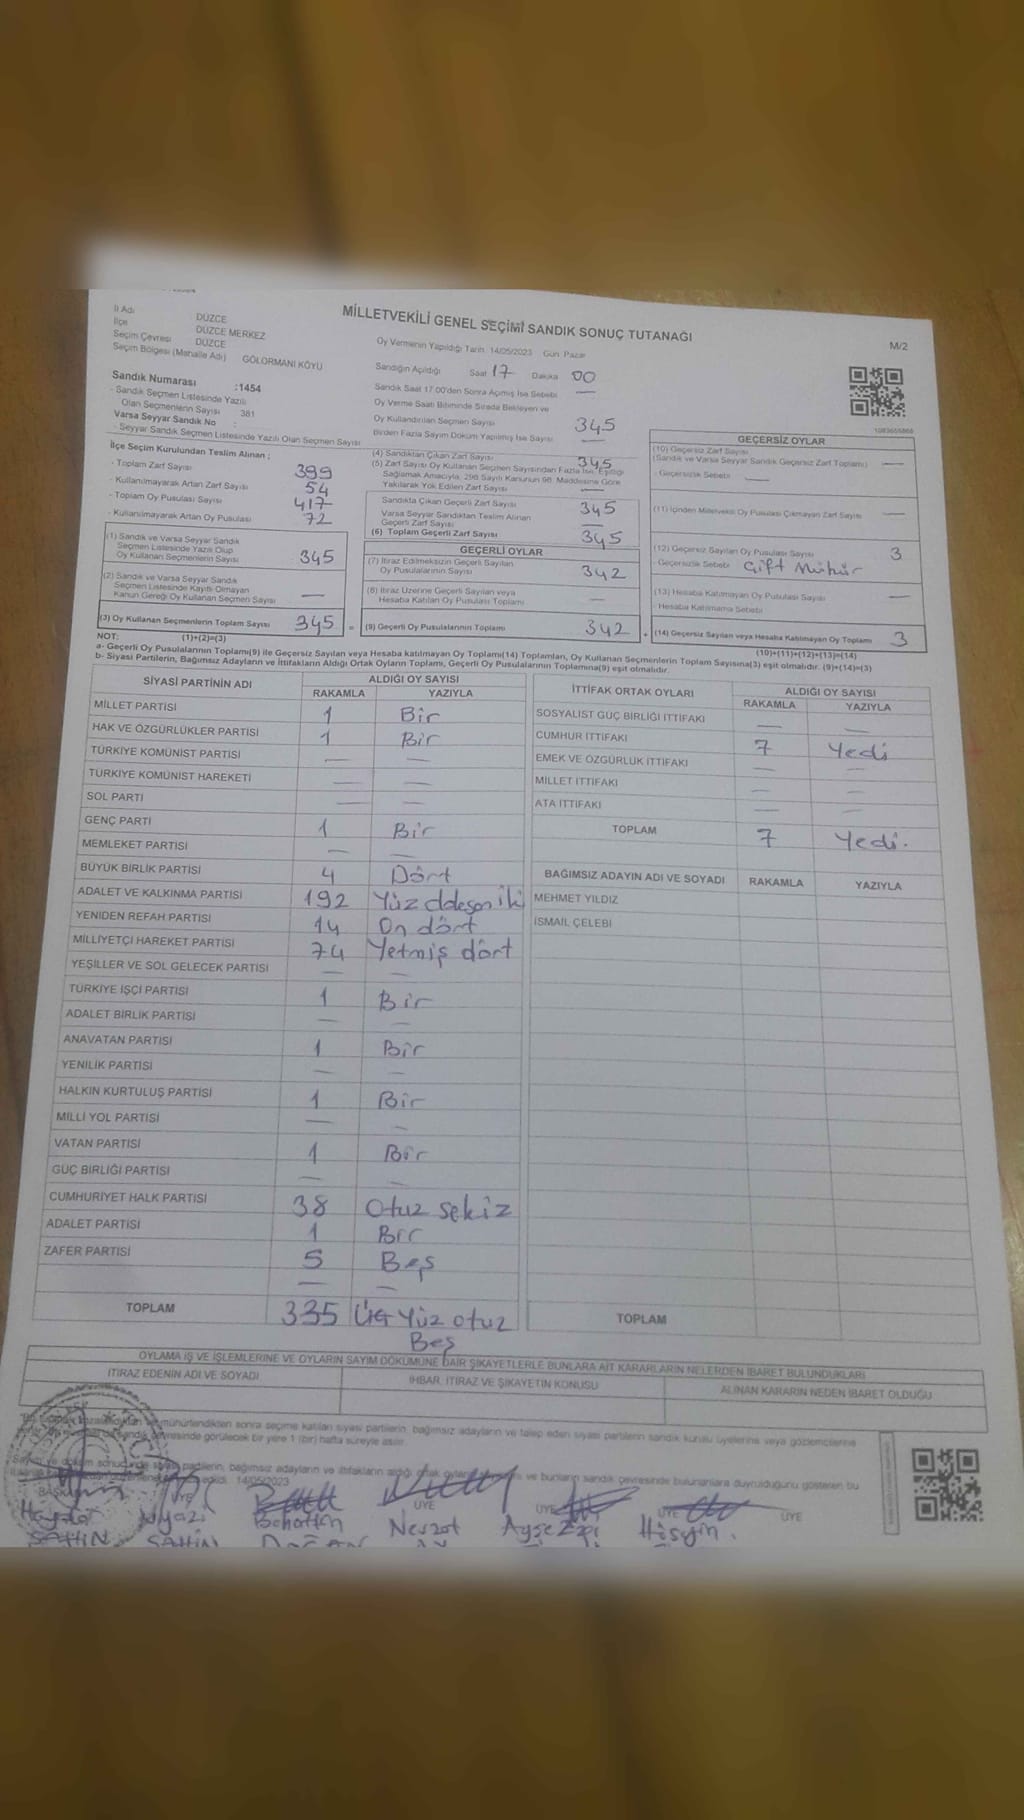 MİLLETVEKİLİ GENEL SEÇİMİ SANDIK SONUÇ TUTANAĞI
M/2
İl Adı DÜZCE
İlçe DÜZCE MERKEZ
Seçim Çevresi DÜZCE
Seçim Bölgesi (Mahalle Adı) GÖLORMANI KÖYÜ
Oy Vermenin Yapıldığı Tarih 14/05/2023 Gün Pazar
Sandığın Açıldığı Saat 17 Dakika 00
Sandık Saat 17.00'den Sonra Açılmış İse Sebebi —
Oy Verme Saati Bitiminde Sırada Bekleyen ve
Oy Kullandırılan Seçmen Sayısı 345
Birden Fazla Sayım Döküm Yapılmış İse Sayısı —
Sandık Numarası :1454
- Sandık Seçmen Listesinde Yazılı
Olan Seçmenlerin Sayısı 381
Varsa Seyyar Sandık No :
- Seyyar Sandık Seçmen Listesinde Yazılı Olan Seçmen Sayısı
İlçe Seçim Kurulundan Teslim Alınan ;
- Toplam Zarf Sayısı 399
- Kullanılmayarak Artan Zarf Sayısı 54
- Toplam Oy Pusulası Sayısı 417
- Kullanılmayarak Artan Oy Pusulası 72
(1) Sandık ve Varsa Seyyar Sandık
Seçmen Listesinde Yazılı Olup
Oy Kullanan Seçmenlerin Sayısı 345
(2) Sandık ve Varsa Seyyar Sandık
Seçmen Listesinde Kayıtlı Olmayan
Kanun Gereği Oy Kullanan Seçmen Sayısı —
(3) Oy Kullanan Seçmenlerin Toplam Sayısı 345 =
(4) Sandıktan Çıkan Zarf Sayısı 345
(5) Zarf Sayısı Oy Kullanan Seçmen Sayısından Fazla İse, Eşitliği
Sağlamak Amacıyla, 298 Sayılı Kanunun 98. Maddesine Göre
Yakılarak Yok Edilen Zarf Sayısı —
Sandıkta Çıkan Geçerli Zarf Sayısı 345
Varsa Seyyar Sandıktan Teslim Alınan
Geçerli Zarf Sayısı —
(6) Toplam Geçerli Zarf Sayısı 345
GEÇERLİ OYLAR
(7) İtiraz Edilmeksizin Geçerli Sayılan
Oy Pusulalarının Sayısı 342
(8) İtiraz Üzerine Geçerli Sayılan veya
Hesaba Katılan Oy Pusulası Toplamı —
(9) Geçerli Oy Pusulalarının Toplamı 342 +
1083655868
GEÇERSİZ OYLAR
(10) Geçersiz Zarf Sayısı
(Sandık ve Varsa Seyyar Sandık Geçersiz Zarf Toplamı) —
- Geçersizlik Sebebi —
(11) İçinden Milletvekili Oy Pusulası Çıkmayan Zarf Sayısı —
(12) Geçersiz Sayılan Oy Pusulası Sayısı 3
- Geçersizlik Sebebi Çift Mühür
(13) Hesaba Katılmayan Oy Pusulası Sayısı —
- Hesaba Katılmama Sebebi
(14) Geçersiz Sayılan veya Hesaba Katılmayan Oy Toplamı 3
NOT: (1)+(2)=(3) (10)+(11)+(12)+(13)=(14)
a- Geçerli Oy Pusulalarının Toplamı(9) ile Geçersiz Sayılan veya Hesaba katılmayan Oy Toplamı(14) Toplamları, Oy Kullanan Seçmenlerin Toplam Sayısına(3) eşit olmalıdır. (9)+(14)=(3)
b- Siyasi Partilerin, Bağımsız Adayların ve İttifakların Aldığı Ortak Oyların Toplamı, Geçerli Oy Pusulalarının Toplamına(9) eşit olmalıdır.
SİYASİ PARTİNİN ADI ALDIĞI OY SAYISI
RAKAMLA YAZIYLA
MİLLET PARTİSİ 1 Bir
HAK VE ÖZGÜRLÜKLER PARTİSİ 1 Bir
TÜRKİYE KOMÜNİST PARTİSİ — —
TÜRKİYE KOMÜNİST HAREKETİ — —
SOL PARTİ — —
GENÇ PARTİ 1 Bir
MEMLEKET PARTİSİ — —
BÜYÜK BİRLİK PARTİSİ 4 Dört
ADALET VE KALKINMA PARTİSİ 192
YENİDEN REFAH PARTİSİ 14 On dört
MİLLİYETÇİ HAREKET PARTİSİ 74 Yetmiş dört
YEŞİLLER VE SOL GELECEK PARTİSİ — —
TÜRKİYE İŞÇİ PARTİSİ 1 Bir
ADALET BİRLİK PARTİSİ — —
ANAVATAN PARTİSİ 1 Bir
YENİLİK PARTİSİ — —
HALKIN KURTULUŞ PARTİSİ 1 Bir
MİLLİ YOL PARTİSİ — —
VATAN PARTİSİ 1 Bir
GÜÇ BİRLİĞİ PARTİSİ — —
CUMHURİYET HALK PARTİSİ 38 Otuz sekiz
ADALET PARTİSİ 1 Bir
ZAFER PARTİSİ 5 Beş
— —
TOPLAM 335 Üç Yüz otuz
Beş
İTTİFAK ORTAK OYLARI ALDIĞI OY SAYISI
RAKAMLA YAZIYLA
SOSYALİST GÜÇ BİRLİĞİ İTTİFAKI — —
CUMHUR İTTİFAKI 7 Yedi
EMEK VE ÖZGÜRLÜK İTTİFAKI — —
MİLLET İTTİFAKI — —
ATA İTTİFAKI — —
TOPLAM 7 Yedi.
BAĞIMSIZ ADAYIN ADI VE SOYADI RAKAMLA YAZIYLA
MEHMET YILDIZ
İSMAİL ÇELEBİ
TOPLAM
OYLAMA İŞ VE İŞLEMLERİNE VE OYLARIN SAYIM DÖKÜMÜNE DAİR ŞİKAYETLERLE BUNLARA AİT KARARLARIN NELERDEN İBARET BULUNDUKLARI
İTİRAZ EDENİN ADI VE SOYADI İHBAR, İTİRAZ VE ŞİKAYETİN KONUSU ALINAN KARARIN NEDEN İBARET OLDUĞU
mühürlendikten sonra seçime katılan siyasi partilerin, bağımsız adayların ve talep eden siyasi partilerin sandık kurulu üyelerine veya gözlemcilerine
çevresinde görülecek bir yere 1 (bir) hafta süreyle asılır.
partilerin, bağımsız adayların ve ittifakların aldığı ortak oyların ve bunların sandık çevresinde bulunanlara duyrulduğunu gösteren bu
14/05/2023
BAŞKAN ÜYE ÜYE ÜYE ÜYE ÜYE
Haydar Niyazi Nevzat Ayşe
ŞAHİN ŞAHİN DOĞAN